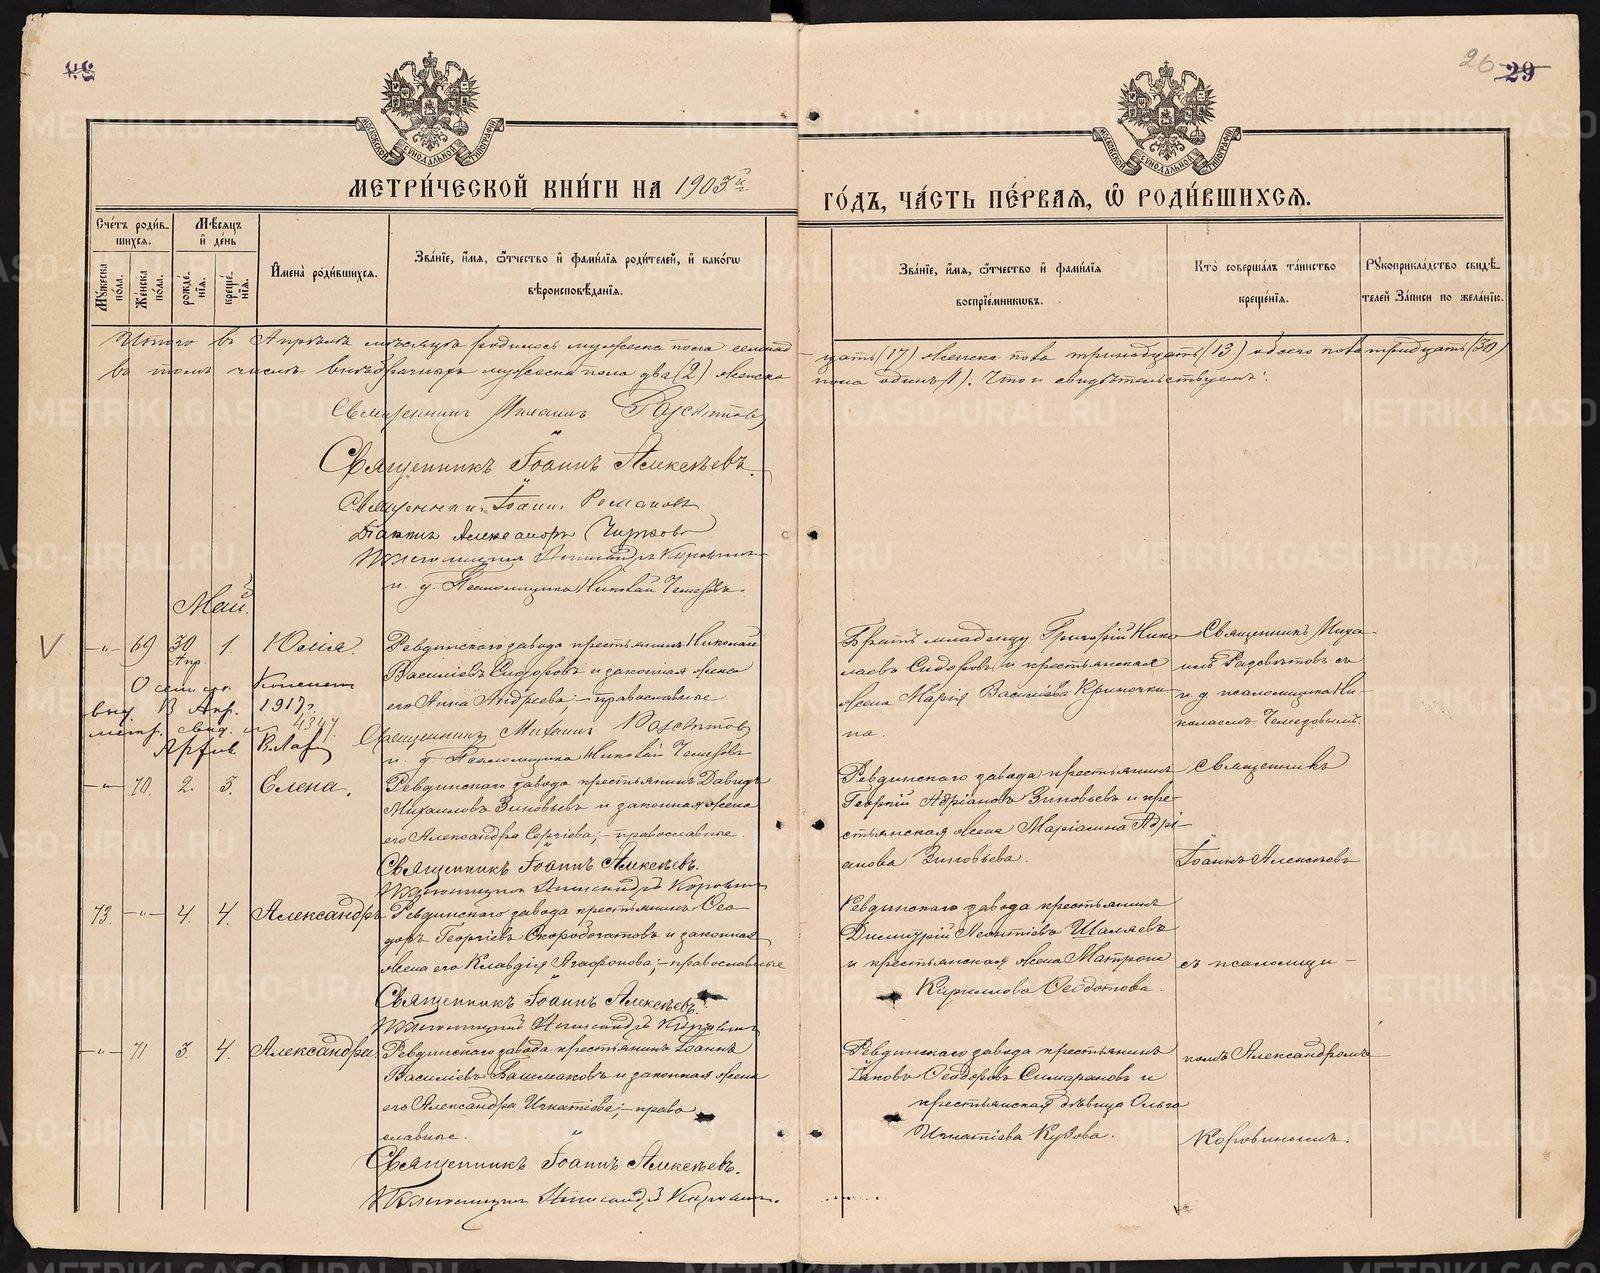 26 29
МОСКОВСКОЙ СУНОДАЛЬНОЙ ТИПОГРАФІИ
МОСКОВСКОЙ СУНОДАЛЬНОЙ ТИПОГРАФІИ
МЕТРИ́ЧЕСКОЙ КНИ́ГИ НА 1903й
ГО́ДЪ, ЧА́СТЬ ПЕ́РВАѦ, Ѡ РОДИ́ВШИХСѦ.
Счетъ роди́вшихся.
Мѣ́сяцъ и де́нь
Му́жеска по́ла.
Же́нска по́ла.
рожде́нія.
креще́нія.
Имена̀ роди́вшихся.
Зва́ніе, и́мя, ѻ́тчество и фами́лія роди́телей, и како́гѡ вѣроисповѣ́данія.
Зва́ніе, и́мя, ѻ́тчество и фами́лія воспріе́мникѡвъ.
Кто̀ соверша́лъ та́инство креще́нія.
Рукоприкла́дство свидѣ́телей за́писи по жела́нію.
Итого въ Апрѣлѣ мѣсяцѣ родилось мужеска пола семнад-
цать (17) женска пола тринадцать (13) обоего пола тридцать (30)
въ томъ числѣ внѣбрачныхъ мужеска пола два (2) женска
пола одинъ (1). Что и свидѣтельствуемъ:
Священникъ Михаилъ
Священникъ Іоаннъ Алексѣевъ.
Священникъ Іоаннъ Романовъ
Діаконъ Александръ
Псаломщикъ Александръ Коровинъ
и. д. Псаломщика Николай
Май.
V
-"- 69 30 Апр. 1. Юлія.
Ревдинскаго завода крестьянинъ Николай
Василіевъ Сидоровъ и законная жена
его Анна Андреева; – православные
Священникъ Михаилъ
и. д. Псаломщика Николай
Братъ младенцу Григорій Нико-
лаевъ Сидоровъ и крестьянская
жена Марія Василіева
Священникъ Миха-
илъ съ
и. д. псаломщика Ни-
колаемъ
О семъ
выд. 13 Апр. 1917 г.
метр. свид. № 4347
-"- 70. 2. 3. Елена.
Ревдинскаго завода крестьянинъ Давидъ
Михаиловъ Зиновьевъ и законная жена
его Александра Сергіева; – православные.
Священникъ Іоаннъ Алексѣевъ.
Псаломщикъ Александръ Коровинъ
Ревдинскаго завода крестьянинъ
Георгій Адріановъ Зиновьевъ и кре-
стьянская жена Маріамна Адрі-
анова Зиновьева.
Священникъ
Іоаннъ Алексѣевъ
73. -"- 4. 4. Александръ
Ревдинскаго завода крестьянинъ Ѳео-
доръ Георгіевъ Скоробогатовъ и законная
жена его Клавдія Агафонова; – православные
Священникъ Іоаннъ Алексѣевъ.
Псаломщикъ Александръ Коровинъ
Ревдинскаго завода крестьянинъ
Димитрій Леонтіевъ Шаляевъ
и крестьянская жена Матрона
Кириллова Ѳедотова.
съ псаломщи-
-"- 71 3. 4. Александра.
Ревдинскаго завода крестьянинъ Іоаннъ
Василіевъ Башмаковъ и законная жена
его Александра Игнатіева; – право-
славные.
Священникъ Іоаннъ Алексѣевъ.
Псаломщикъ Александръ Коровинъ.
Ревдинскаго завода крестьянинъ
Іаковъ Ѳеодоровъ и
крестьянская дѣвица Ольга
Игнатіева
комъ Александромъ
Коровинымъ.
METRIKI.GASO-URAL.RU